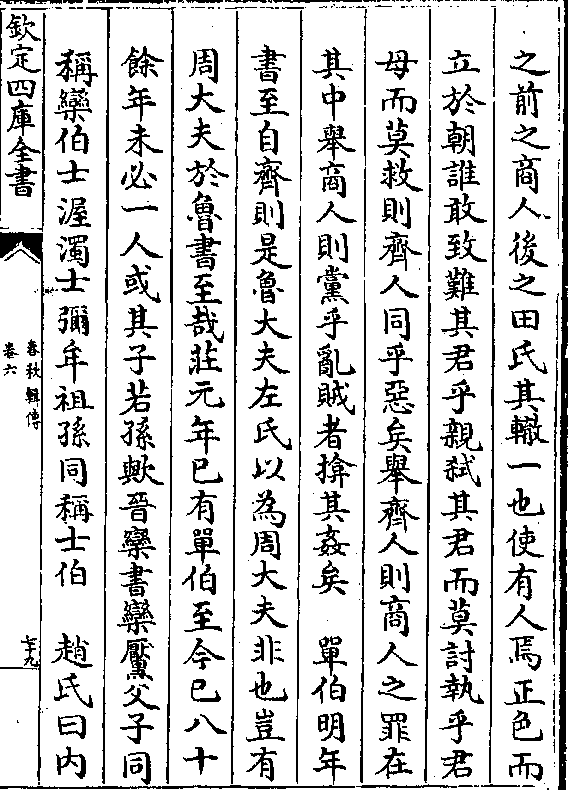 之前之商人後之田氏其轍一也使有人焉正色而
立於朝誰敢致難其君乎親弑其君而莫討執乎君
母而莫救則齊人同乎惡矣舉齊人則商人之罪在
其中舉商人則黨乎亂賊者揜其姦矣　單伯明年
書至自齊則是魯大夫左氏以為周大夫非也豈有
周大夫於魯書至哉莊元年已有單伯至今已八十
餘年未必一人或其子若孫歟晉欒書欒黶父子同
稱欒伯士渥濁士彌牟祖孫同稱士伯　趙氏曰内
欽定四庫全書
春秋輯傳
卷六